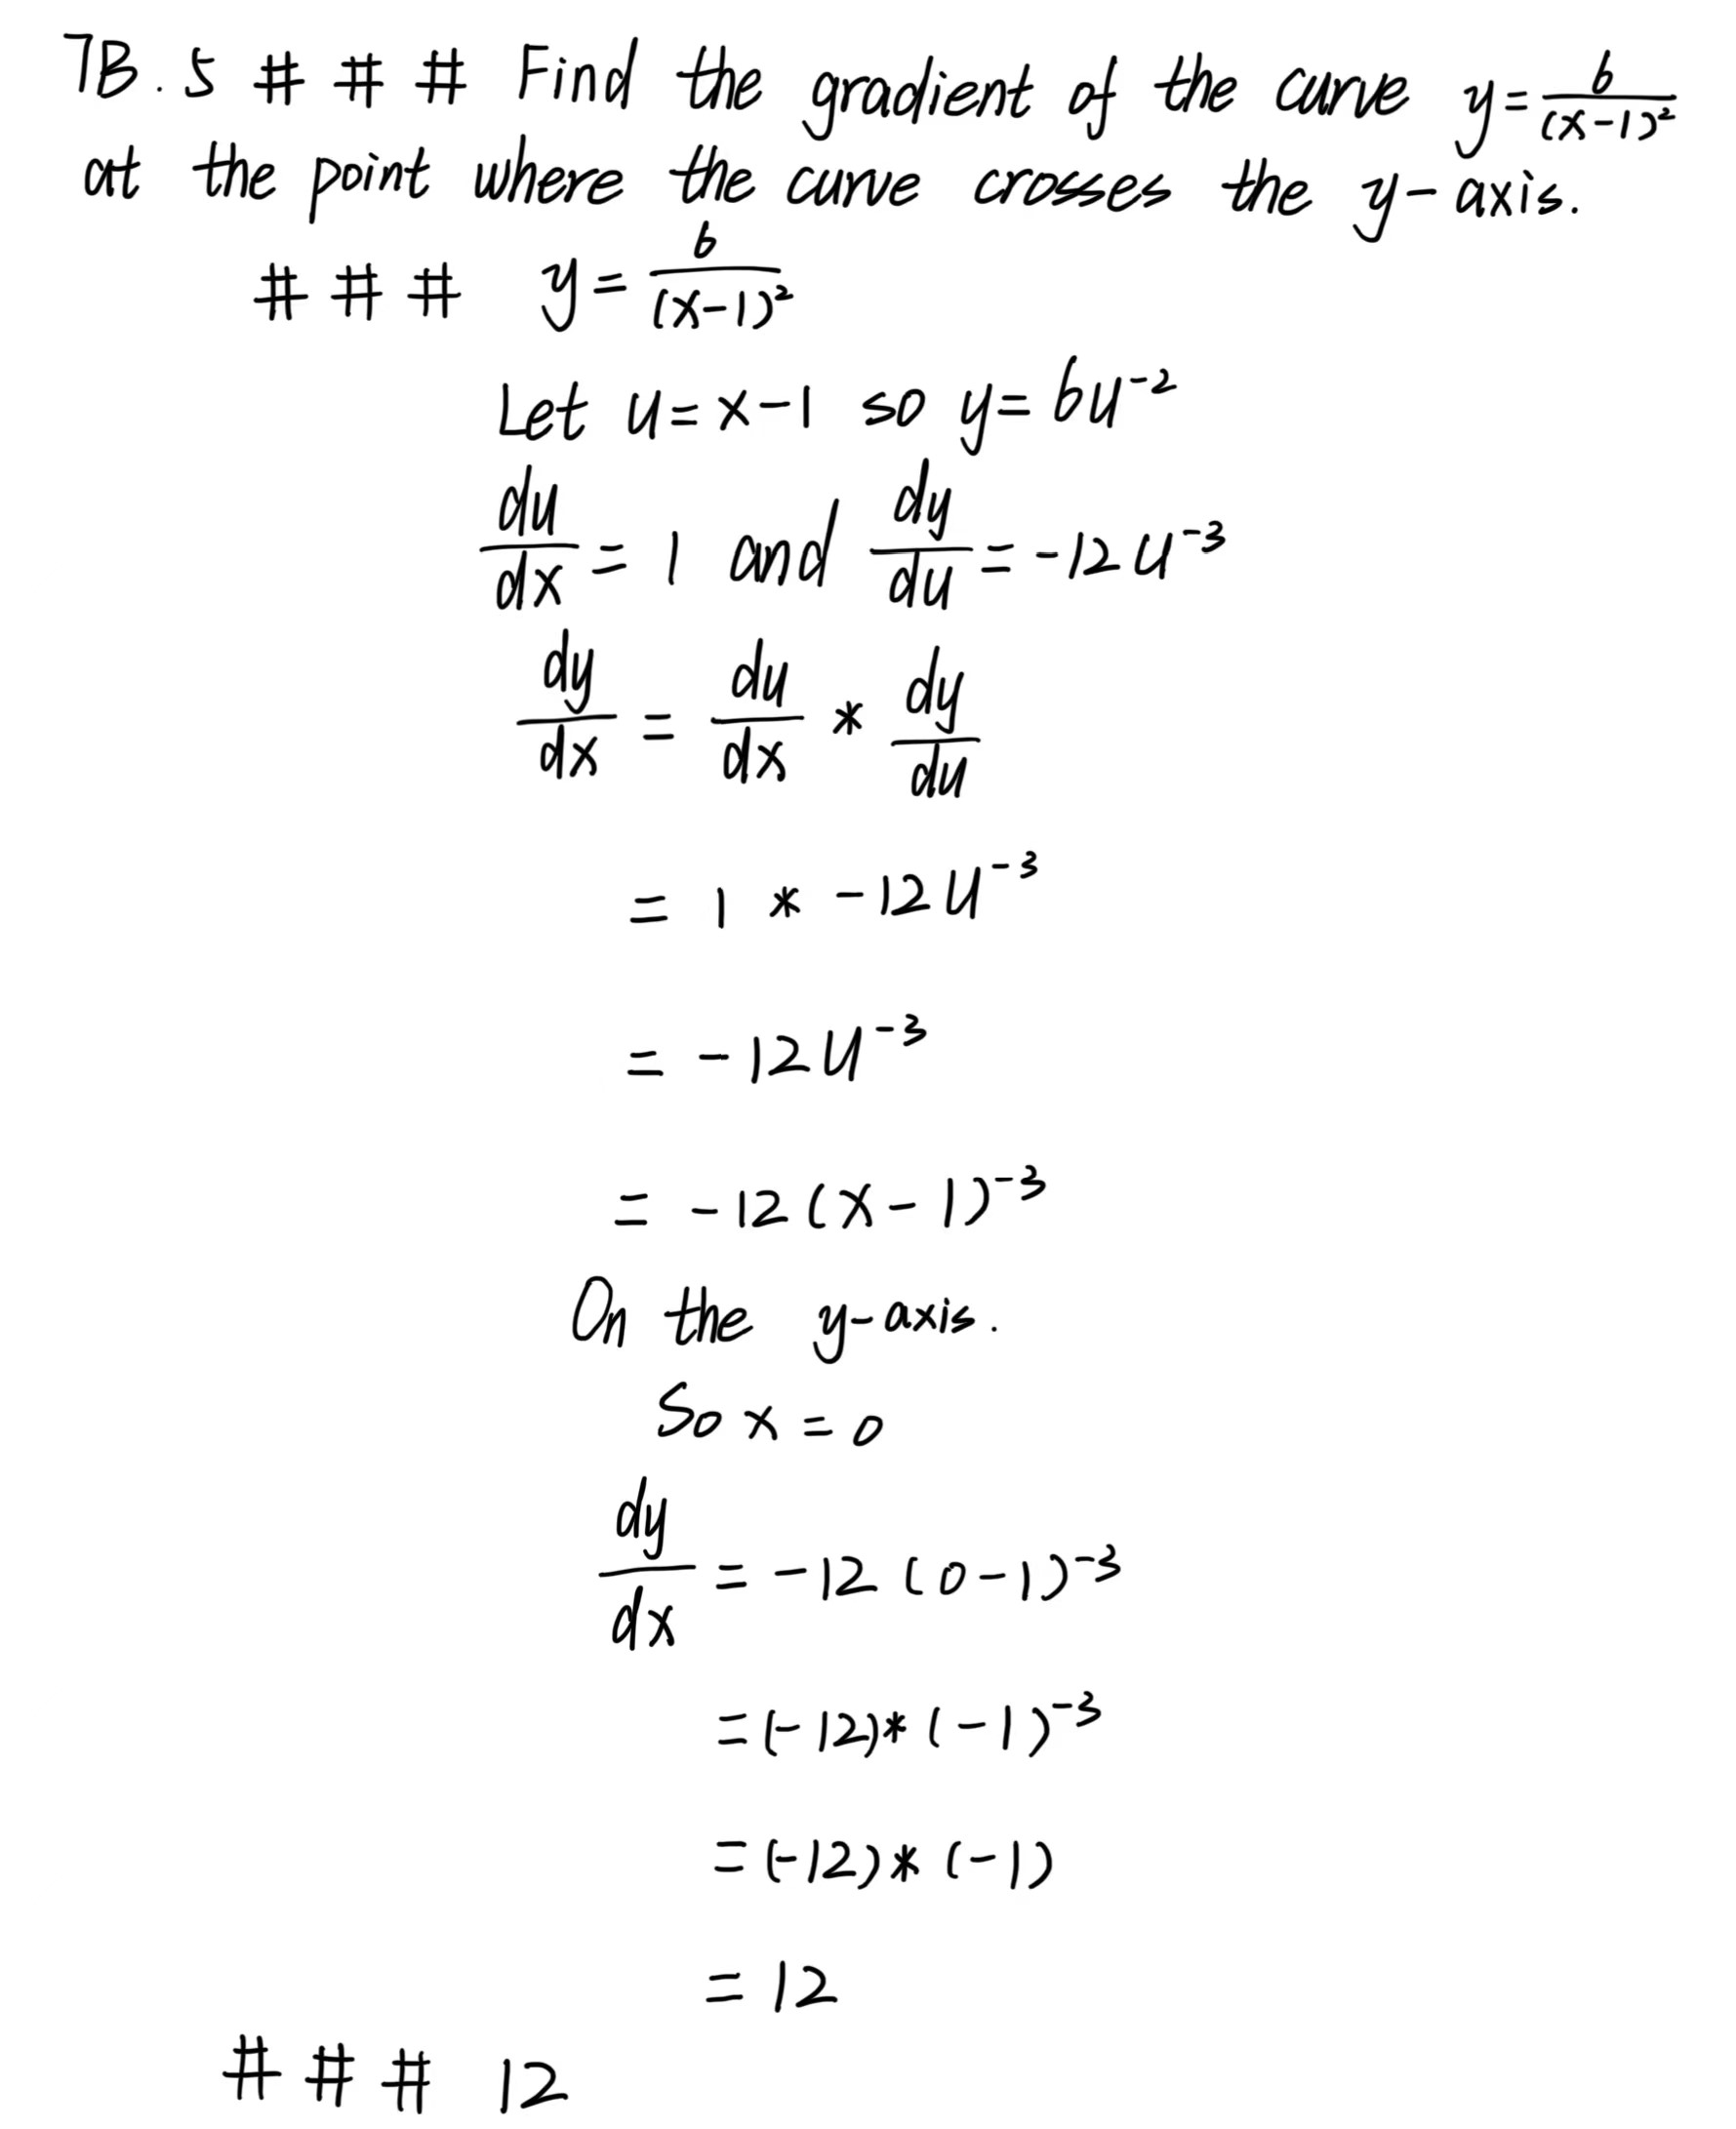 7B.5 # # # Find the gradient of the curve y = 6/(x-1)²
at the point where the curve crosses the y-axis.
# # # y = 6/(x-1)²
Let u = x-1 so y = 6u⁻²
du/dx = 1 and dy/du = -12u⁻³
dy/dx = du/dx * dy/du
= 1 * -12u⁻³
= -12u⁻³
= -12(x-1)⁻³
On the y-axis.
So x = 0
dy/dx = -12(0-1)⁻³
= (-12)*(-1)⁻³
= (-12)*(-1)
= 12
# # # 12